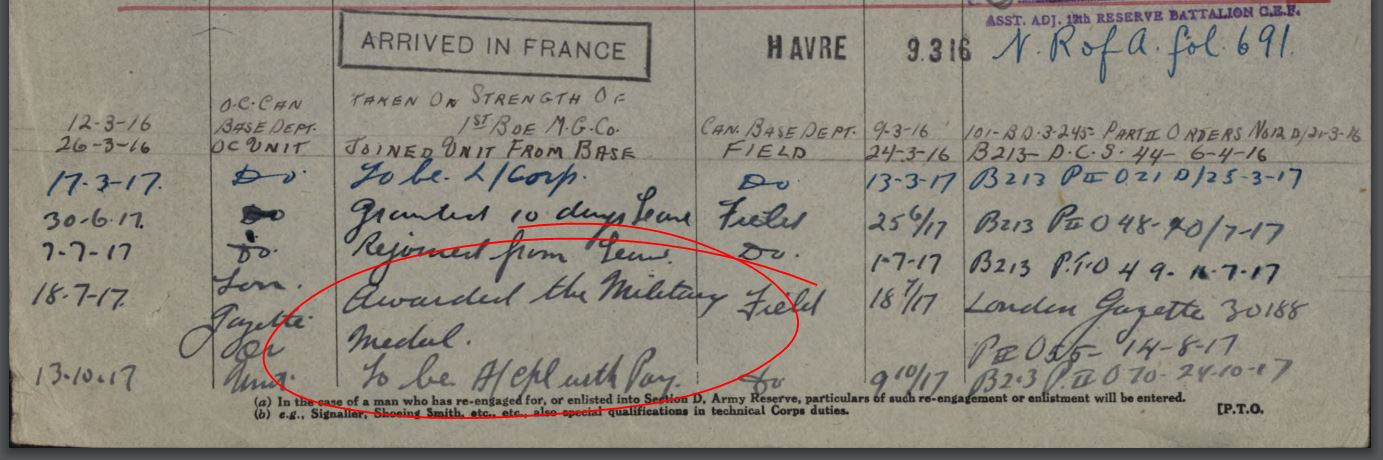 ASST. ADJ. 12th RESERVE BATTALION C.E.F.
ARRIVED IN FRANCE HAVRE 9.3 16 N. R of A. fol. 691.
O.C. CAN TAKEN ON STRENGTH OF
12-3-16 BASE DEPT. 1ST BDE M.G.Co. CAN. BASE DEPT. 9-3-16 101-B.D.-3-245- PART II ORDERS No12 D/21-3-16
26-3-16 OC UNIT JOINED UNIT FROM BASE FIELD 24-3-16 B213- D.C.S. 44- 6-4-16
17-3-17. Do To be L/Corp. Do 13-3-17 B213 PII O 21 D/25-3-17
30-6-17. Do Granted 10 days leave Field 25 6/17 B213 PII O 48- /7-17
7-7-17 Do. Rejoined from leave. Do. 1-7-17 B213 P.II.O 49- 7-17
18-7-17. Lon. Awarded the Military Field 18 7/17 London Gazette 30188
Gazette Medal. PII O 55- 14-8-17
OC
13-10-17 Unit. To be A/Cpl with Pay. Do 9 10/17 B213 P.II O 70- 24-10-17
(a) In the case of a man who has re-engaged for, or enlisted into Section D, Army Reserve, particulars of such re-engagement or enlistment will be entered.
(b) e.g., Signaller, Shoeing Smith, etc., etc., also special qualifications in technical Corps duties. [P.T.O.